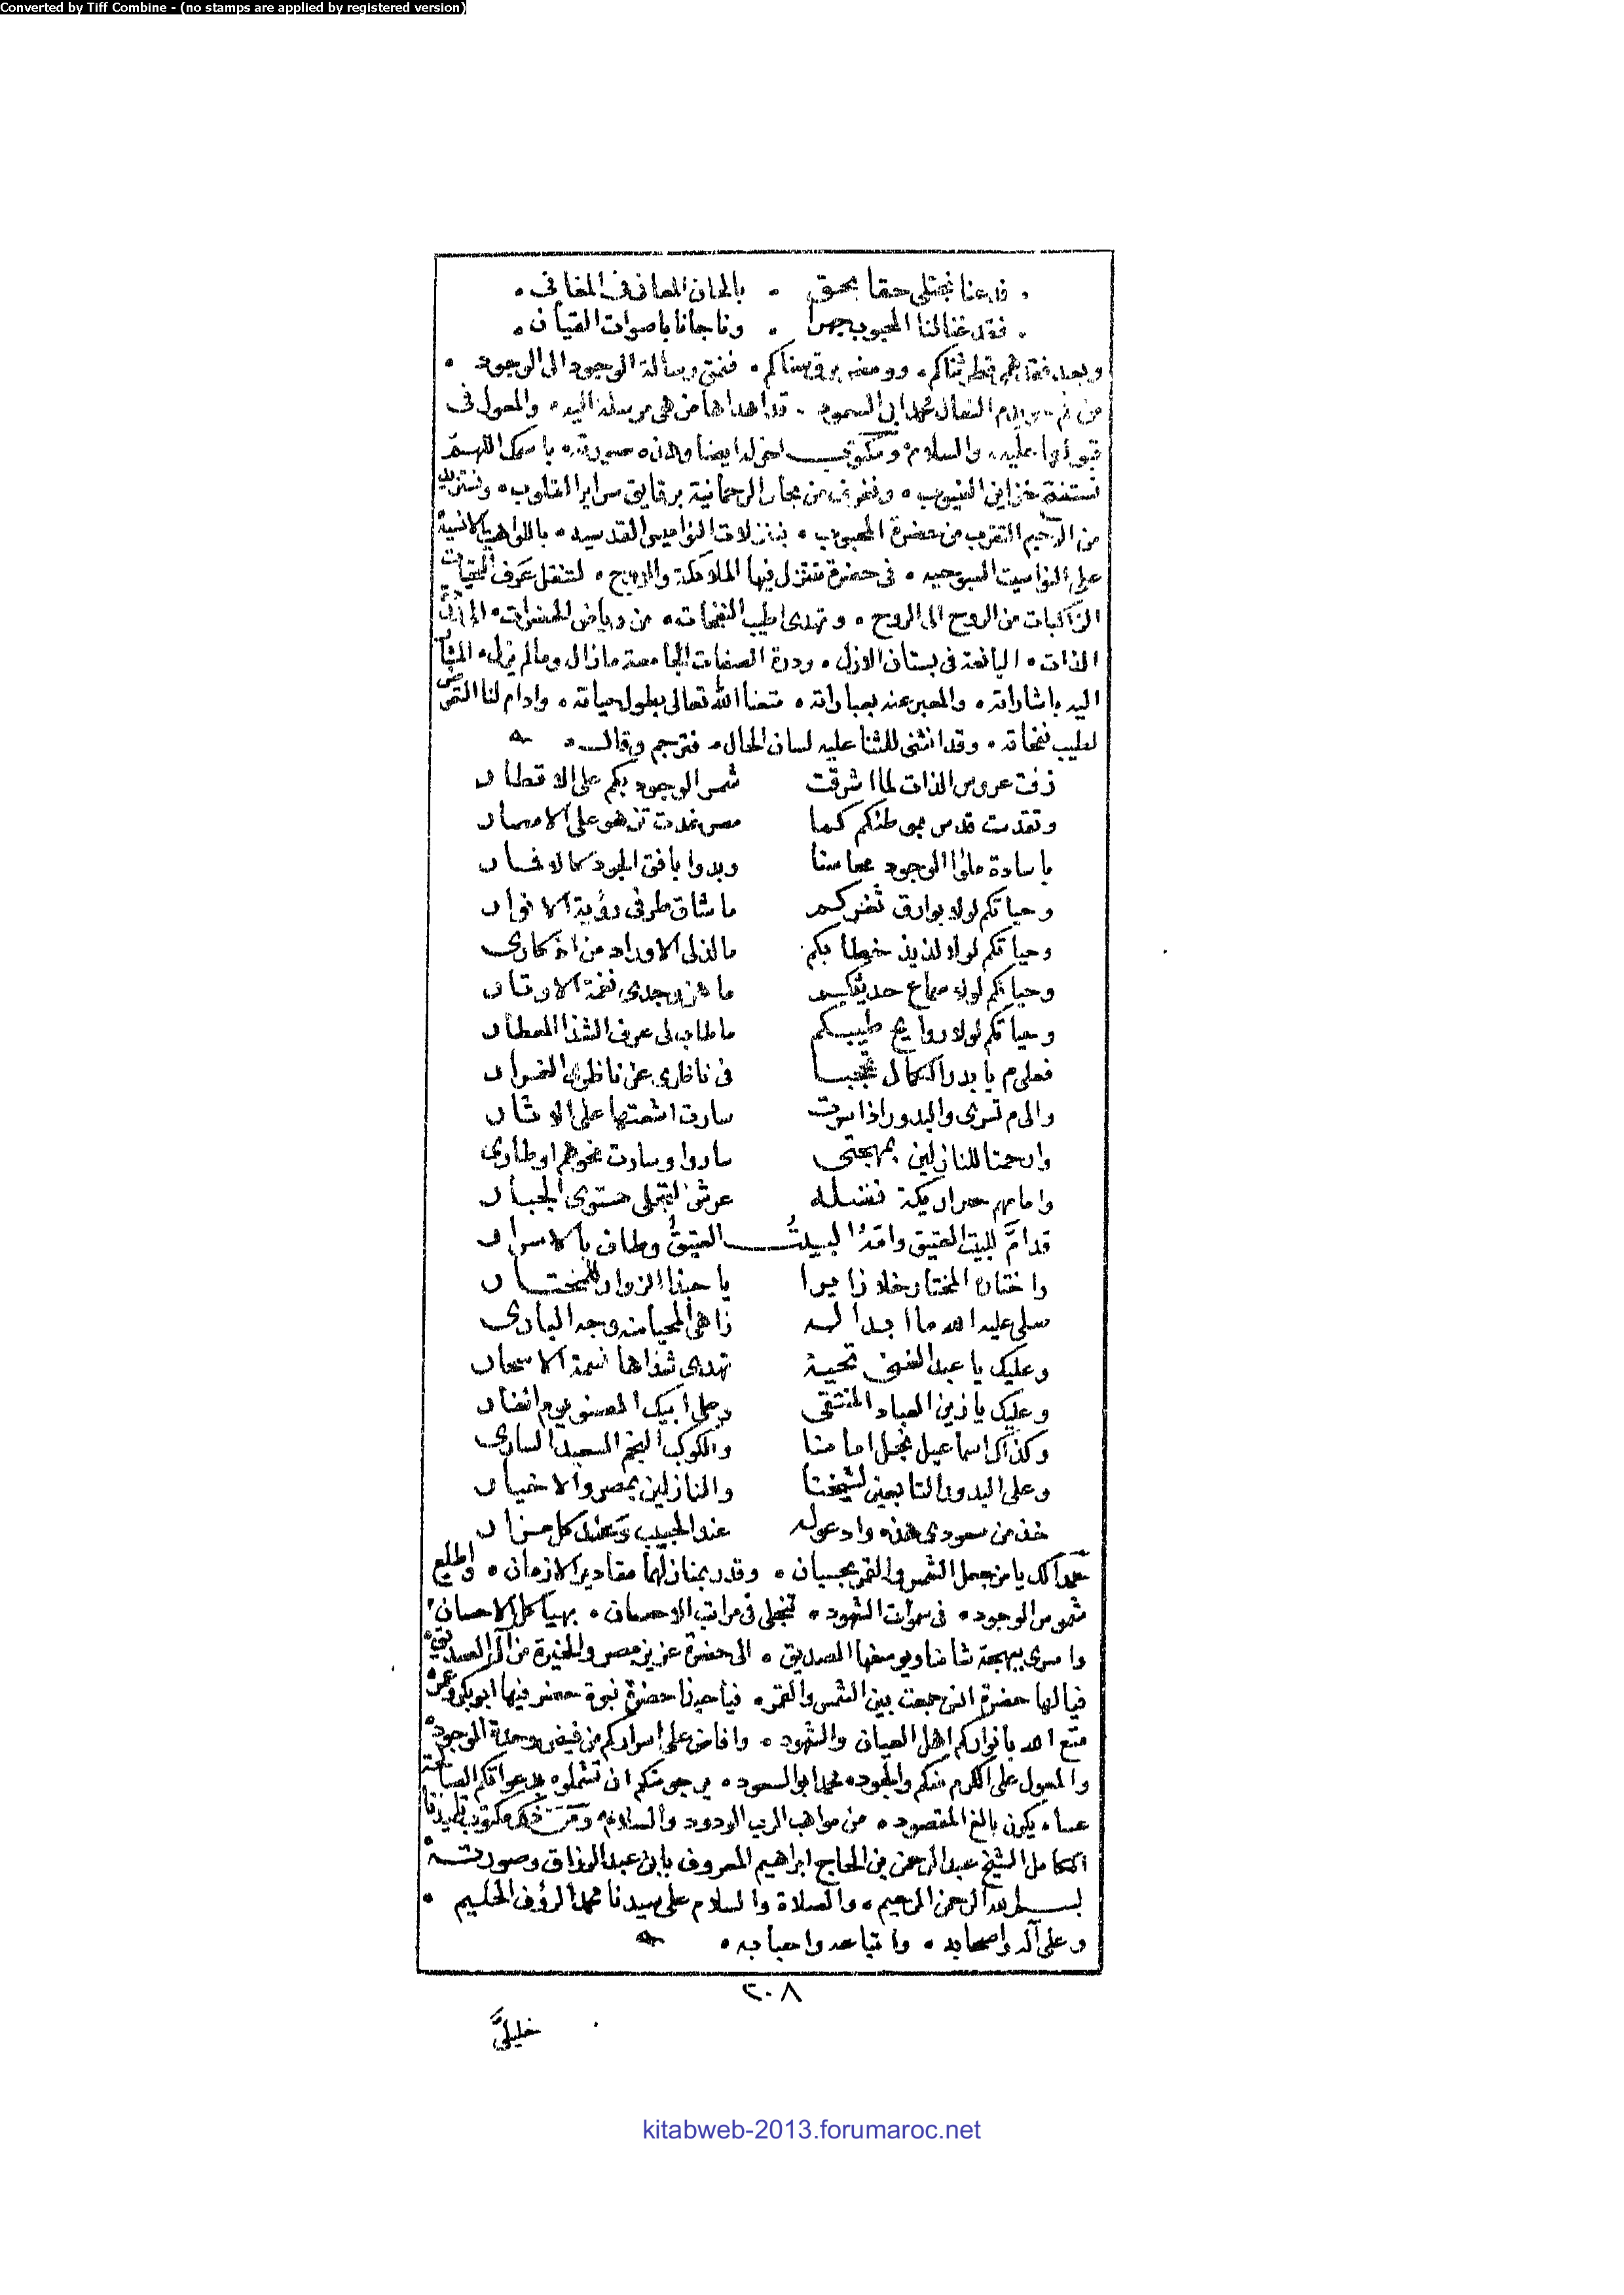 Converted by Tiff Combine - (no stamps are applied by registered version)
فدعنا نجتلى حقا بحق بالحان المعانى فى المغانى
فقد غنا لنا المحبوب جهرا وناجانا باصوات القيان
وبعد فقد قطر ثناكم وومض برق سناكم فنمتى رسالة الوجود الى الوجود
من النعال محمد ابى السعود قد اهداها من هى مرسلة اليه والمعول فى
قبولها عليه والسلام ومكتوب اخر له ايضا وهذه صورته باسمك اللهم
نستفتح خزاين الغيوب ونغترف من بحار الرحمانية برقايق سراير القلوب ونستزيد
من الرحيم التقرب من حضرة المحبوب بتنزلات النواميس القدسيه باللواهيت الانسية
على النواسيت السبوحيه فى حضرة تتنزل فيها الملائكة والروح لتنقل عرف التحيات
الزاكيات من الروح الى الروح وتهدى اطيب النفحات من رياض الحضرات الى
الذات اليانعة فى بستان الازل ودرة الصفات الجامعة مازال ومالم يزل المشار
اليه باشاراته والمعبر عنه بعباراته متعنا الله تعالى بطول حياته وادام لنا التعرض
لطيب نفحاته وقد انثنى للثنا عليه لسان الحال فترجم وقال
زفت عروس الذات لما اشرقت شمس الوجود بكم على الاقطار
وتقدست قدس بموطنكم كما مصر غدت تزهو على الامصار
يا سادة ملؤا الوجود محاسنا وبدوا بافق الجود كالاقمار
وحياتكم لولا بوارق ثغركم ما شاق طرفى رؤية الانوار
وحياتكم لولا لذيذ خطابكم مالذلى الاوراد من اذكارى
وحياتكم لولا سماع حديثكم ما هز وجدى نغمة الاوتار
وحياتكم لولا روايح طيبكم ما طاب لى عرف الشذا المعطار
فعلى م يا بدر الكمال تحجبا فى ناظرى عن ناظرى
والى م تسرى والبدور اذا سرت سارت اشعتها على الاثار
وارحمتا للنازلين بمهجتى ساروا وسارت نحوهم اوطارى
وامامهم اريكة فضله عرش التجلى مستوى الجبار
قد ام للبيت العتيق وامه البيت العتيق وطاف بالاسرار
واختاره المختار خلا زايرا يا حبذا الزوار للمختار
صلى عليه الله ما ابدا له زاهى المحيا منه وجه البارى
وعليك يا عبد الغنى تحية تهدى شذاها نسمة الاسحار
وعليك يا زين العباد المنتقى وعلى ابيك
وكذاك اسماعيل نجل امامنا والكوكب النجم السعيد السارى
وعلى البدور التابعين لشيخنا والنازلين بمصر والاخيار
خذ من سعودى هذه وادعو له عند الحبيب وعند كل مزار
حمدا لك يا من جعل الشمس والقمر بحسبان وقدر بمنازلهما مقادير الازمان واطلع
شموس الوجود فى سموات الشهود تنجلى فى مراتب الاحسان بهياكل الاحسان
واسرى ببهجة شامنا ويوسفها الصديق الى حضرة عزيز مصر والخيرة من آل الصديق
فيالها حضرة انس جمعت بين الشمس والقمر فياحبذا حضرة نبوة حضر فيها ابو بكر وعمر
متع الله بانواركم اهل العيان والشهود وافاض على اسراركم من فيض وحدة الوجود
والمعول على الكرم منكم والجود محمد ابو السعود يرجو منكم ان تشملوه بدعواتكم الصالحة
عساه يكون بالغ المقصود من مواهب الرب الودود والسلام ومن ذلك مكتوب تلميذنا
الكامل الشيخ عبد الرحمن بن الحاج ابراهيم المعروف بابن عبد الرزاق وصورته
بسم الله الرحمن الرحيم والصلاة والسلام على سيدنا محمد الرؤف الحليم
وعلى آله واصحابه واتباعه واحبابه
٢٠٨
خليلىّ
kitabweb-2013.forumaroc.net